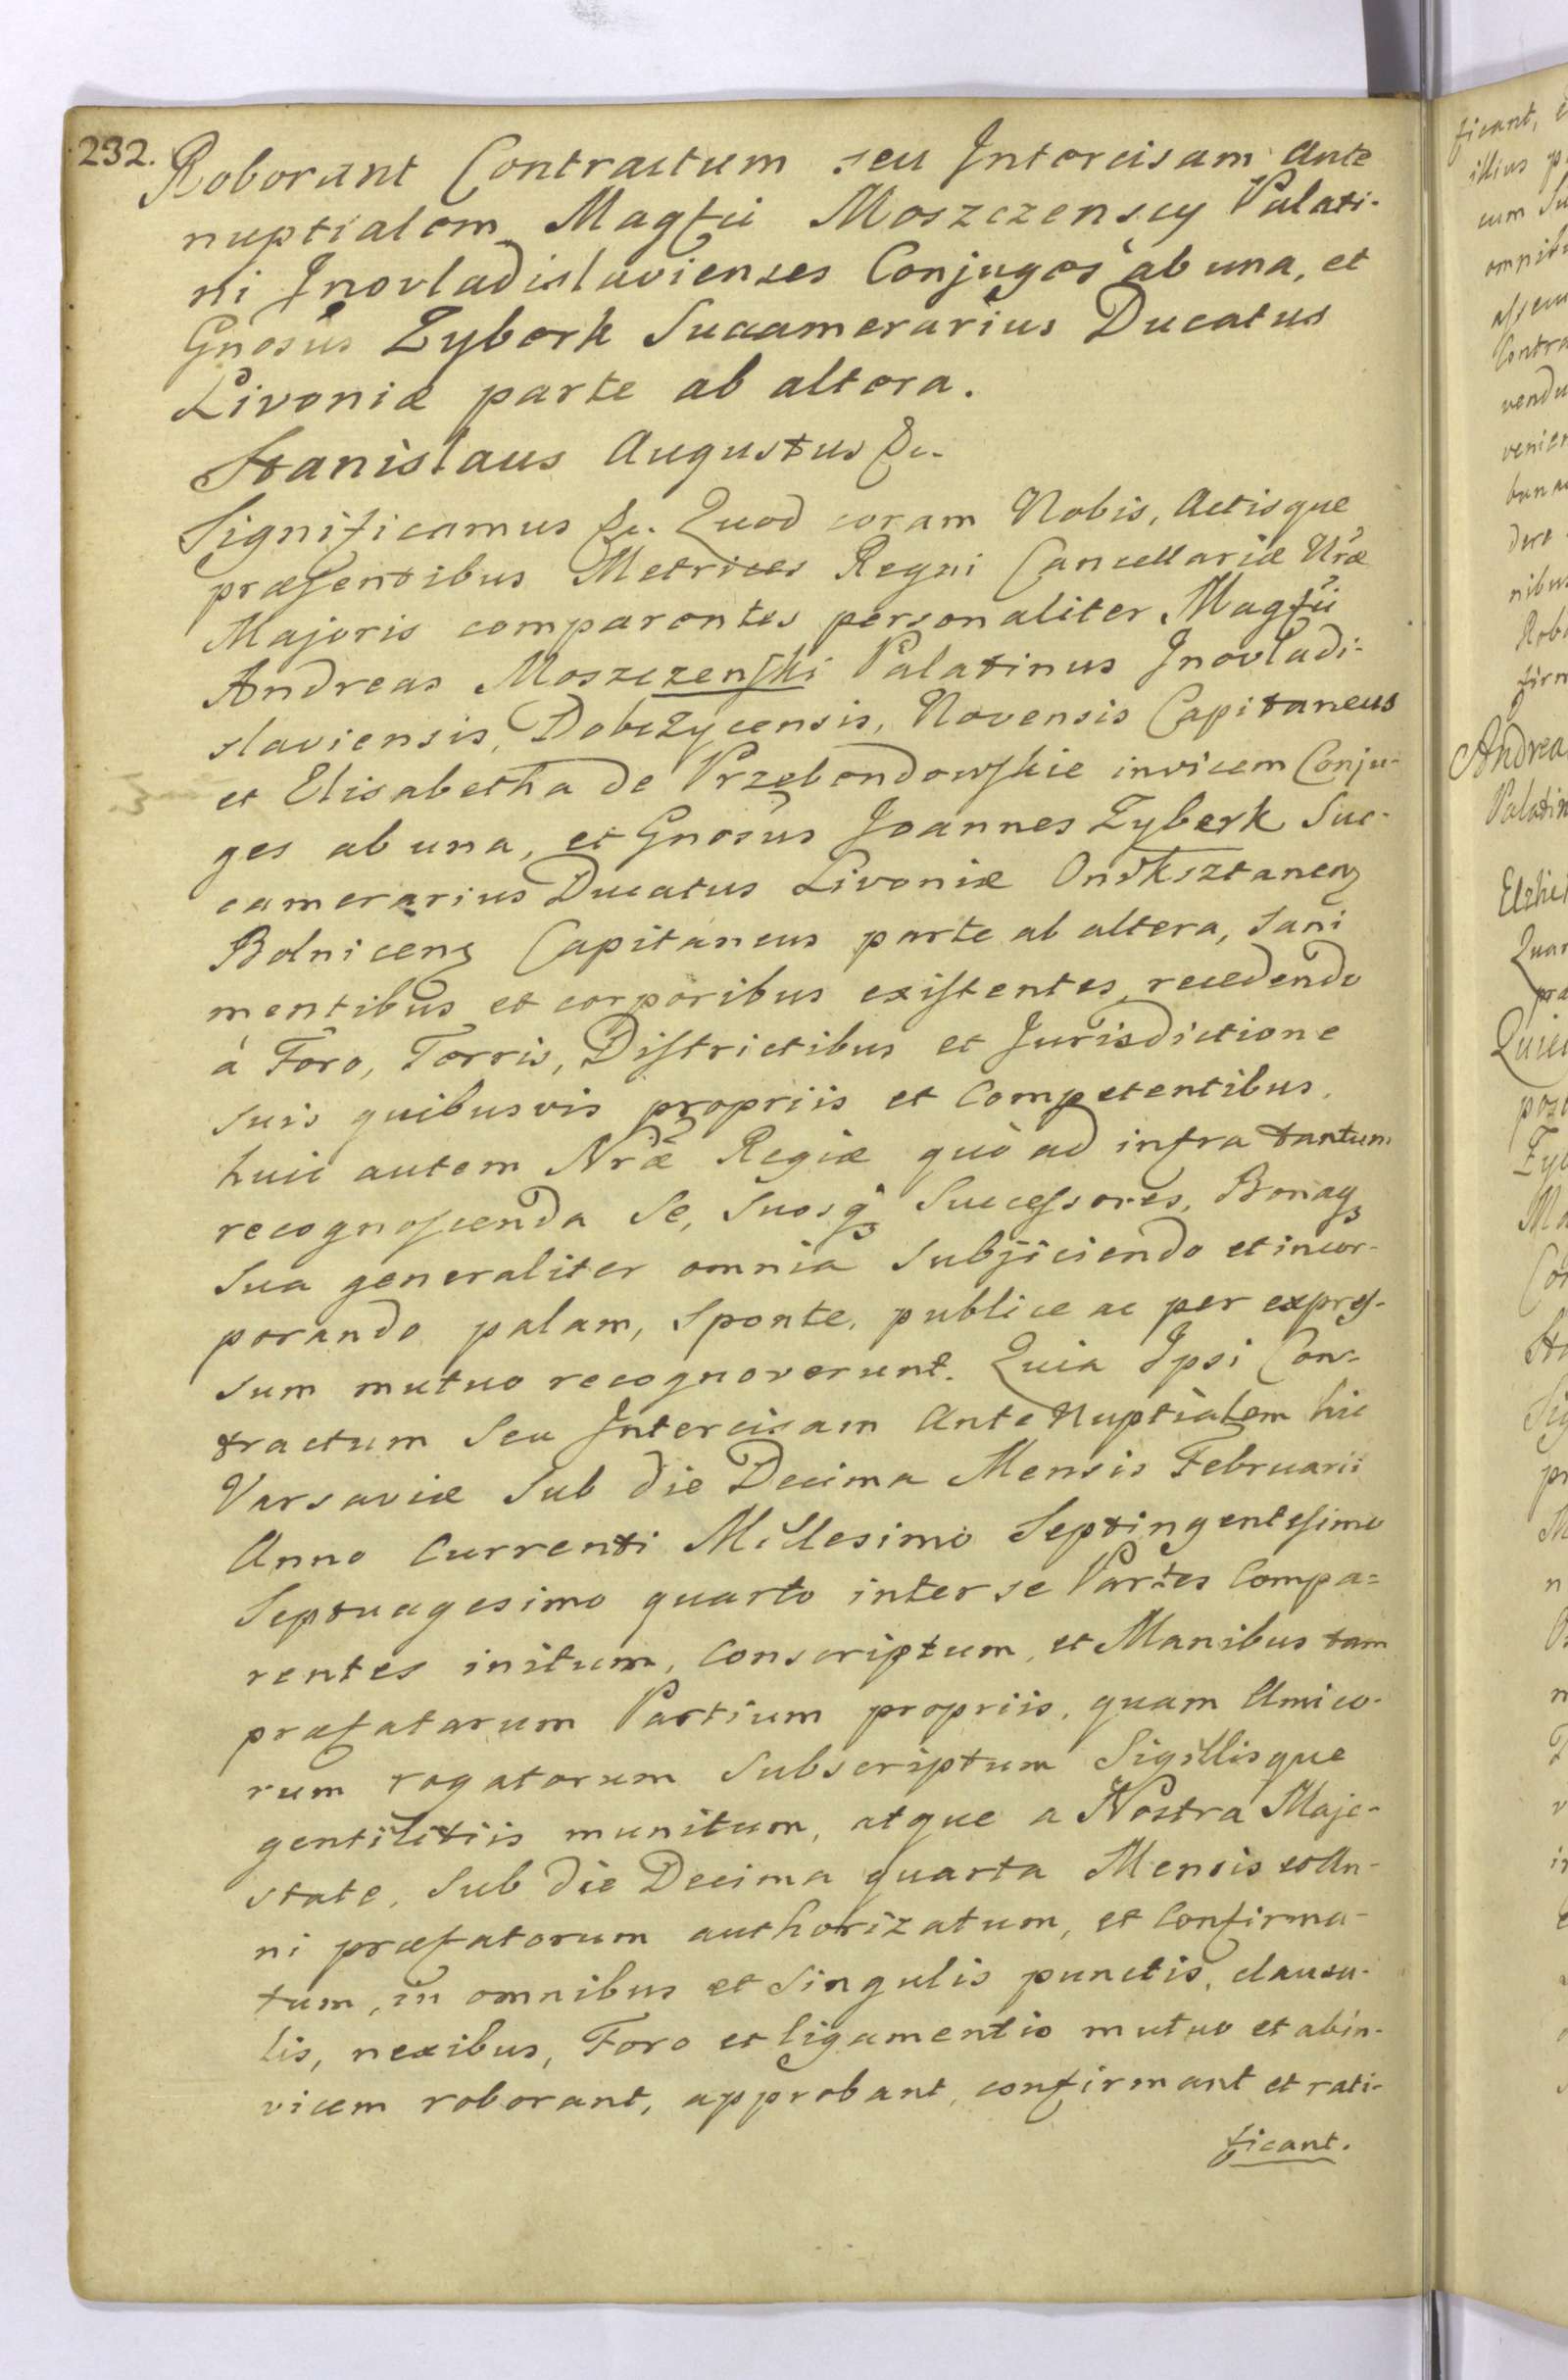 232.
Roborant Contractum seu Intercisam ante
nuptialem Magfii Moszczenscy Palati-
ni Inovladislavienses Conjuges ab una, et
Gnosus Zyberk Succamerarius Ducatus
Livoniæ parte ab altera.
Stanislaus Augustus &c.
Significamus &c. Quod coram Nobis, Actisque
præsentibus Metrices Regni Cancellariæ Nræ
Majoris comparentes personaliter Magfii
Andreas Moszczenski Palatinus Inovladi-
slaviensis, Dobczycensis, Novensis Capitaneus
et Elisabetha de Przebendowskie invicem Conju-
ges ab una, et Gnosus Joannes Zyberk Suc-
camerarius Ducatus Livoniæ Oniksztanen
Bolnicen Capitaneus parte ab altera, sani
mentibus et corporibus existentes, recedendo
à Foro, Terris, Districtibus et Jurisdictione
suis quibusvis propriis et Competentibus,
huic autem Nræ Regiæ quò ad infra tantum
recognoscenda Se, Suosq3 Successores, Bonaq3
Sua generaliter omnia Subjiciendo et incor-
porando palam, Sponte, publice ac per expres-
sum mutuo recognoverunt. Quia Ipsi Con-
tractum Seu Intercisam Ante Nuptialem hic
Varsaviæ Sub die Decima Mensis Februarii
Anno Currenti Millesimo Septingentesimo
Septuagesimo quarto inter se Partes Compa=
rentes initum, Conscriptum, et Manibus tam
præfatarum Partium propriis, quam Amico-
rum rogatorum Subscriptum Sigillisque
gentilitiis munitum, atque a Nostra Maje-
state, Sub die Decima quarta Mensis et An-
ni præfatorum authorizatum, et Confirma-
tum, in omnibus et Singulis punctis, clausu-
lis, nexibus, Foro et ligamentis mutuo et abin-
vicem roborant, approbant, confirmant et rati-
ficant.